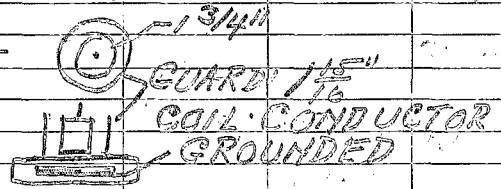 1 3/4"
GUARD 1 15/16"
COIL CONDUCTOR
GROUNDED